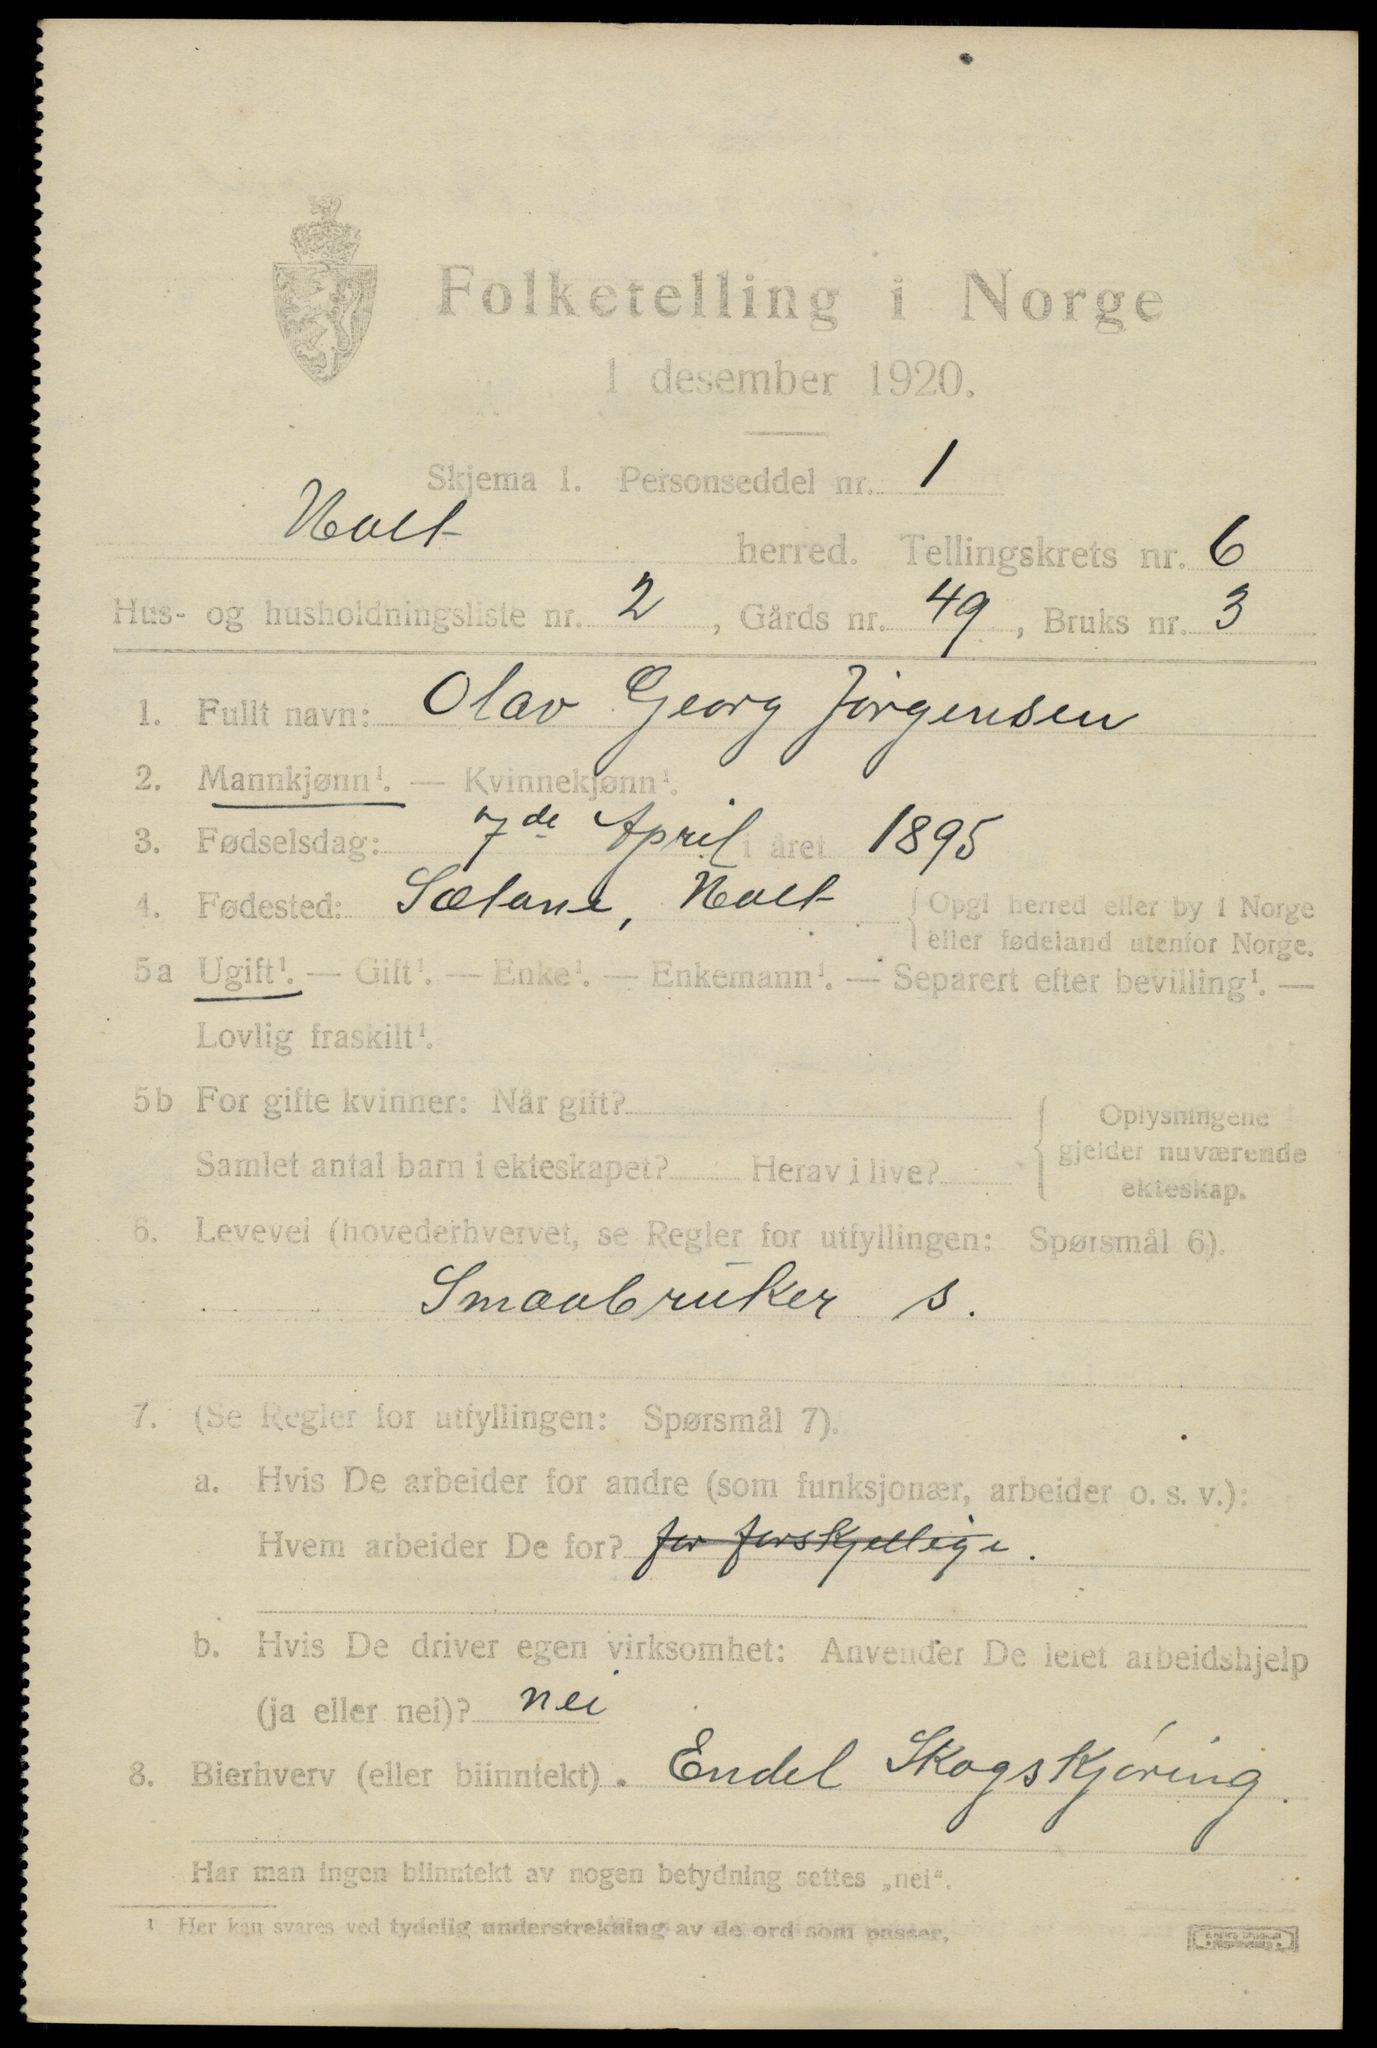 Folketelling i Norge
1 desember 1920.
Skjema 1. Personseddel nr. 1
Holt herred. Tellingskrets nr. 6
Hus- og husholdningsliste nr. 2, Gårds nr. 49, Bruks nr. 3
1. Fullt navn: Olav Georg Jörgensen
2. Mannkjønn¹. — Kvinnekjønn¹.
3. Fødselsdag: 7de April i året 1895
4. Fødested: Sætane, Holt {Opgi herred eller by i Norge
eller fødeland utenfor Norge.
5a Ugift¹. — Gift¹. — Enke¹. — Enkemann¹. — Separert efter bevilling¹. —
Lovlig fraskilt¹.
5b For gifte kvinner: Når gift? { Oplysningene
gjelder nuværende
Samlet antal barn i ekteskapet? Herav i live?
ekteskap.
6. Levevei (hovederhvervet, se Regler for utfyllingen: Spørsmål 6).
Smaabruker s.
7. (Se Regler for utfyllingen: Spørsmål 7).
a. Hvis De arbeider for andre (som funksjonær, arbeider o. s. v.):
Hvem arbeider De for? for forskjellige.
b. Hvis De driver egen virksomhet: Anvender De leiet arbeidshjelp
(ja eller nei)? nei
8. Bierhverv (eller biinntekt). Endel Skogskjöring.
Har man ingen biinntekt av nogen betydning settes „nei“.
¹ Her kan svares ved tydelig understrekning av de ord som passer.